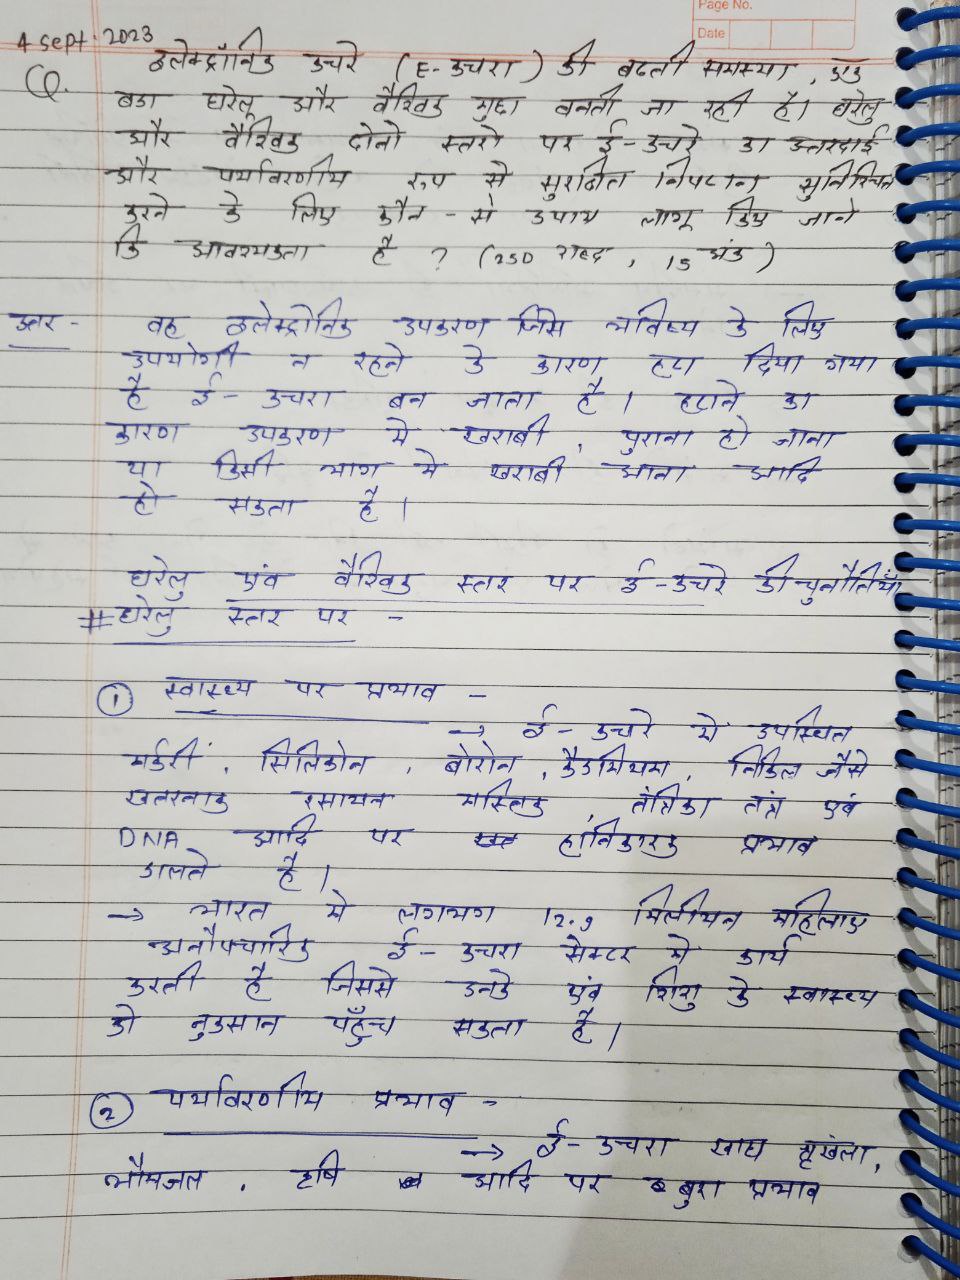 Page No.
Date
4 Sept. 2023
Q. इलेक्ट्रॉनिक कचरे (E-कचरा) की बढती समस्या, एक
बडा घरेलु और वैश्विक मुद्दा बनती जा रही है। घरेलु
और वैश्विक दोनो स्तरो पर ई-कचरे का उत्तरदाई
और पर्यावरणीय रुप से सुरक्षित निपटान सुनिश्चित
करने के लिए कौन-से उपाय लागू किए जाने
कि आवश्यकता है ? (250 शब्द, 15 अंक)
उत्तर- वह इलेक्ट्रोनिक उपकरण जिसे भविष्य के लिए
उपयोगी न रहने के कारण हटा दिया गया
है ई-कचरा बन जाता है। हटाने का
कारण उपकरण मे खराबी, पुराना हो जाना
या किसी भाग मे खराबी आना आदि
हो सकता है।
घरेलु एवं वैश्विक स्तर पर ई-कचरे की चुनौतियाँ
# घरेलु स्तर पर -
① स्वास्थ्य पर प्रभाव -
→ ई-कचरे मे उपस्थित
मर्करी, सिलिकोन, बोरोन, कैडमियम, निकिल जैसे
खतरनाक रसायन मस्तिक, तंत्रिका तंत्र एवं
DNA आदि पर हानिकारक प्रभाव
डालते है।
→ भारत मे लगभग 12.9 मिलीयन महिलाए
अनौपचारिक ई-कचरा सेक्टर मे कार्य
करती है जिससे उनके एवं शिशु के स्वास्थ्य
को नुकसान पहुँच सकता है।
② पर्यावरणीय प्रभाव -
→ ई-कचरा खाद्य श्रृखंला,
भौमजल, कृषि आदि पर बुरा प्रभाव